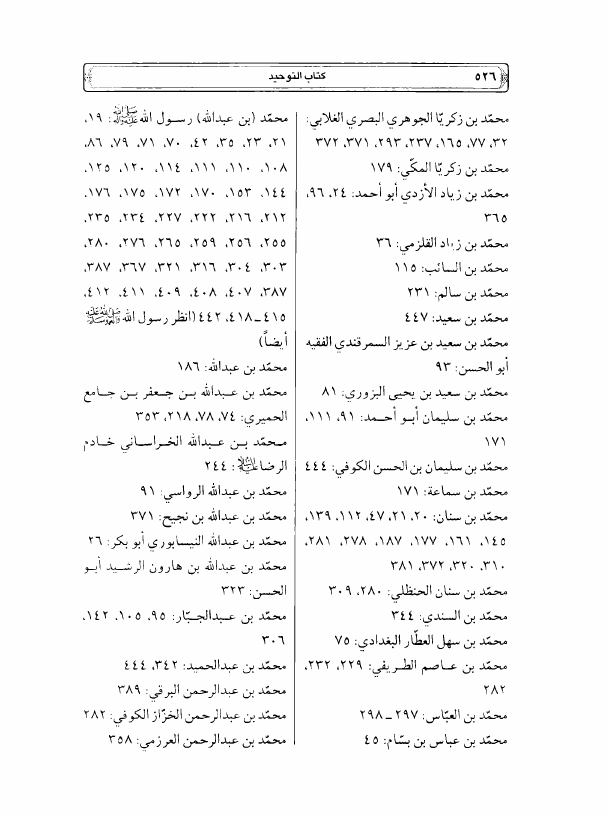 ٥٢٦
كتاب التوحيد
محمّد بن زكريّا الجوهري البصري الغلابي:
٣٢، ٧٧، ١٦٥، ٢٣٧، ٢٩٣، ٣٧١، ٣٧٢
محمّد بن زكريّا المكّي: ١٧٩
محمّد بن زياد الأزدي أبو أحمد: ٢٤، ٩٦،
٣٦٥
محمّد بن زياد القلزمي: ٣٦
محمّد بن السائب: ١١٥
محمّد بن سالم: ٢٣١
محمّد بن سعيد: ٤٤٧
محمّد بن سعيد بن عزيز السمرقندي الفقيه
أبو الحسن: ٩٣
محمّد بن سعيد بن يحيى البزوري: ٨١
محمّد بن سليمان أبو أحمد: ٩١، ١١١،
١٧١
محمّد بن سليمان بن الحسن الكوفي: ٤٤٤
محمّد بن سماعة: ١٧١
محمّد بن سنان: ٢٠، ٢١، ٤٧، ١١٢، ١٣٩،
١٤٥، ١٦١، ١٧٧، ١٨٧، ٢٧٨، ٢٨١،
٣١٠، ٣٢٠، ٣٧٢، ٣٨١
محمّد بن سنان الحنظلي: ٢٨٠، ٣٠٩
محمّد بن السندي: ٣٤٤
محمّد بن سهل العطّار البغدادي: ٧٥
محمّد بن عاصم الطريفي: ٢٢٩، ٢٣٢،
٢٨٢
محمّد بن العبّاس: ٢٩٧ـ٢٩٨
محمّد بن عباس بن بسّام: ٤٥
محمّد (بن عبدالله) رسول الله ﷺ: ١٩،
٢١، ٢٣، ٣٥، ٤٢، ٧٠، ٧١، ٧٩، ٨٦،
١٠٨، ١١٠، ١١١، ١١٤، ١٢٠، ١٢٥،
١٤٤، ١٥٣، ١٧٠، ١٧٢، ١٧٥، ١٧٦،
٢١٢، ٢١٦، ٢٢٢، ٢٢٧، ٢٣٤، ٢٣٥،
٢٥٥، ٢٥٦، ٢٥٩، ٢٦٥، ٢٧٦، ٢٨٠،
٣٠٣، ٣٠٤، ٣١٦، ٣٢١، ٣٦٧، ٣٨٧،
٣٨٧، ٤٠٧، ٤٠٨، ٤٠٩، ٤١١، ٤١٢،
٤١٥ـ٤١٨، ٤٤٢ (انظر رسول الله ﷺ
أيضاً)
محمّد بن عبدالله: ١٨٦
محمّد بن عبدالله بن جعفر بن جامع
الحميري: ٧٤، ٧٨، ٢١٨، ٣٥٣
محمّد بن عبدالله الخراساني خادم
الرضا عليه السلام: ٢٤٤
محمّد بن عبدالله الرواسي: ٩١
محمّد بن عبدالله بن نجيح: ٣٧١
محمّد بن عبدالله النيسابوري أبو بكر: ٢٦
محمّد بن عبدالله بن هارون الرشيد أبو
الحسن: ٣٢٣
محمّد بن عبدالجبّار: ٩٥، ١٠٥، ١٤٢،
٣٠٦
محمّد بن عبدالحميد: ٣٤٢، ٤٤٤
محمّد بن عبدالرحمن البرقي: ٣٨٩
محمّد بن عبدالرحمن الخزّاز الكوفي: ٢٨٢
محمّد بن عبدالرحمن العرزمي: ٣٥٨